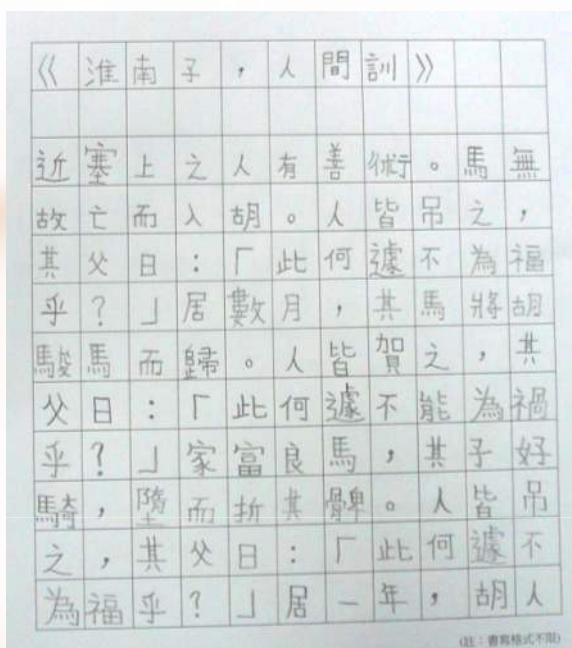 《淮南子,人間訓》
近塞上之人有善術。馬無
故亡而入胡。人皆吊之,
其父曰:「此何遽不為福
乎?」居數月,其馬將胡
駿馬而歸。人皆賀之,其
父曰:「此何遽不能為禍
乎?」家富良馬,其子好
騎,墮而折其髀。人皆吊
之,其父曰:「此何遽不
為福乎?」居一年,胡人
(註:書寫格式不限)